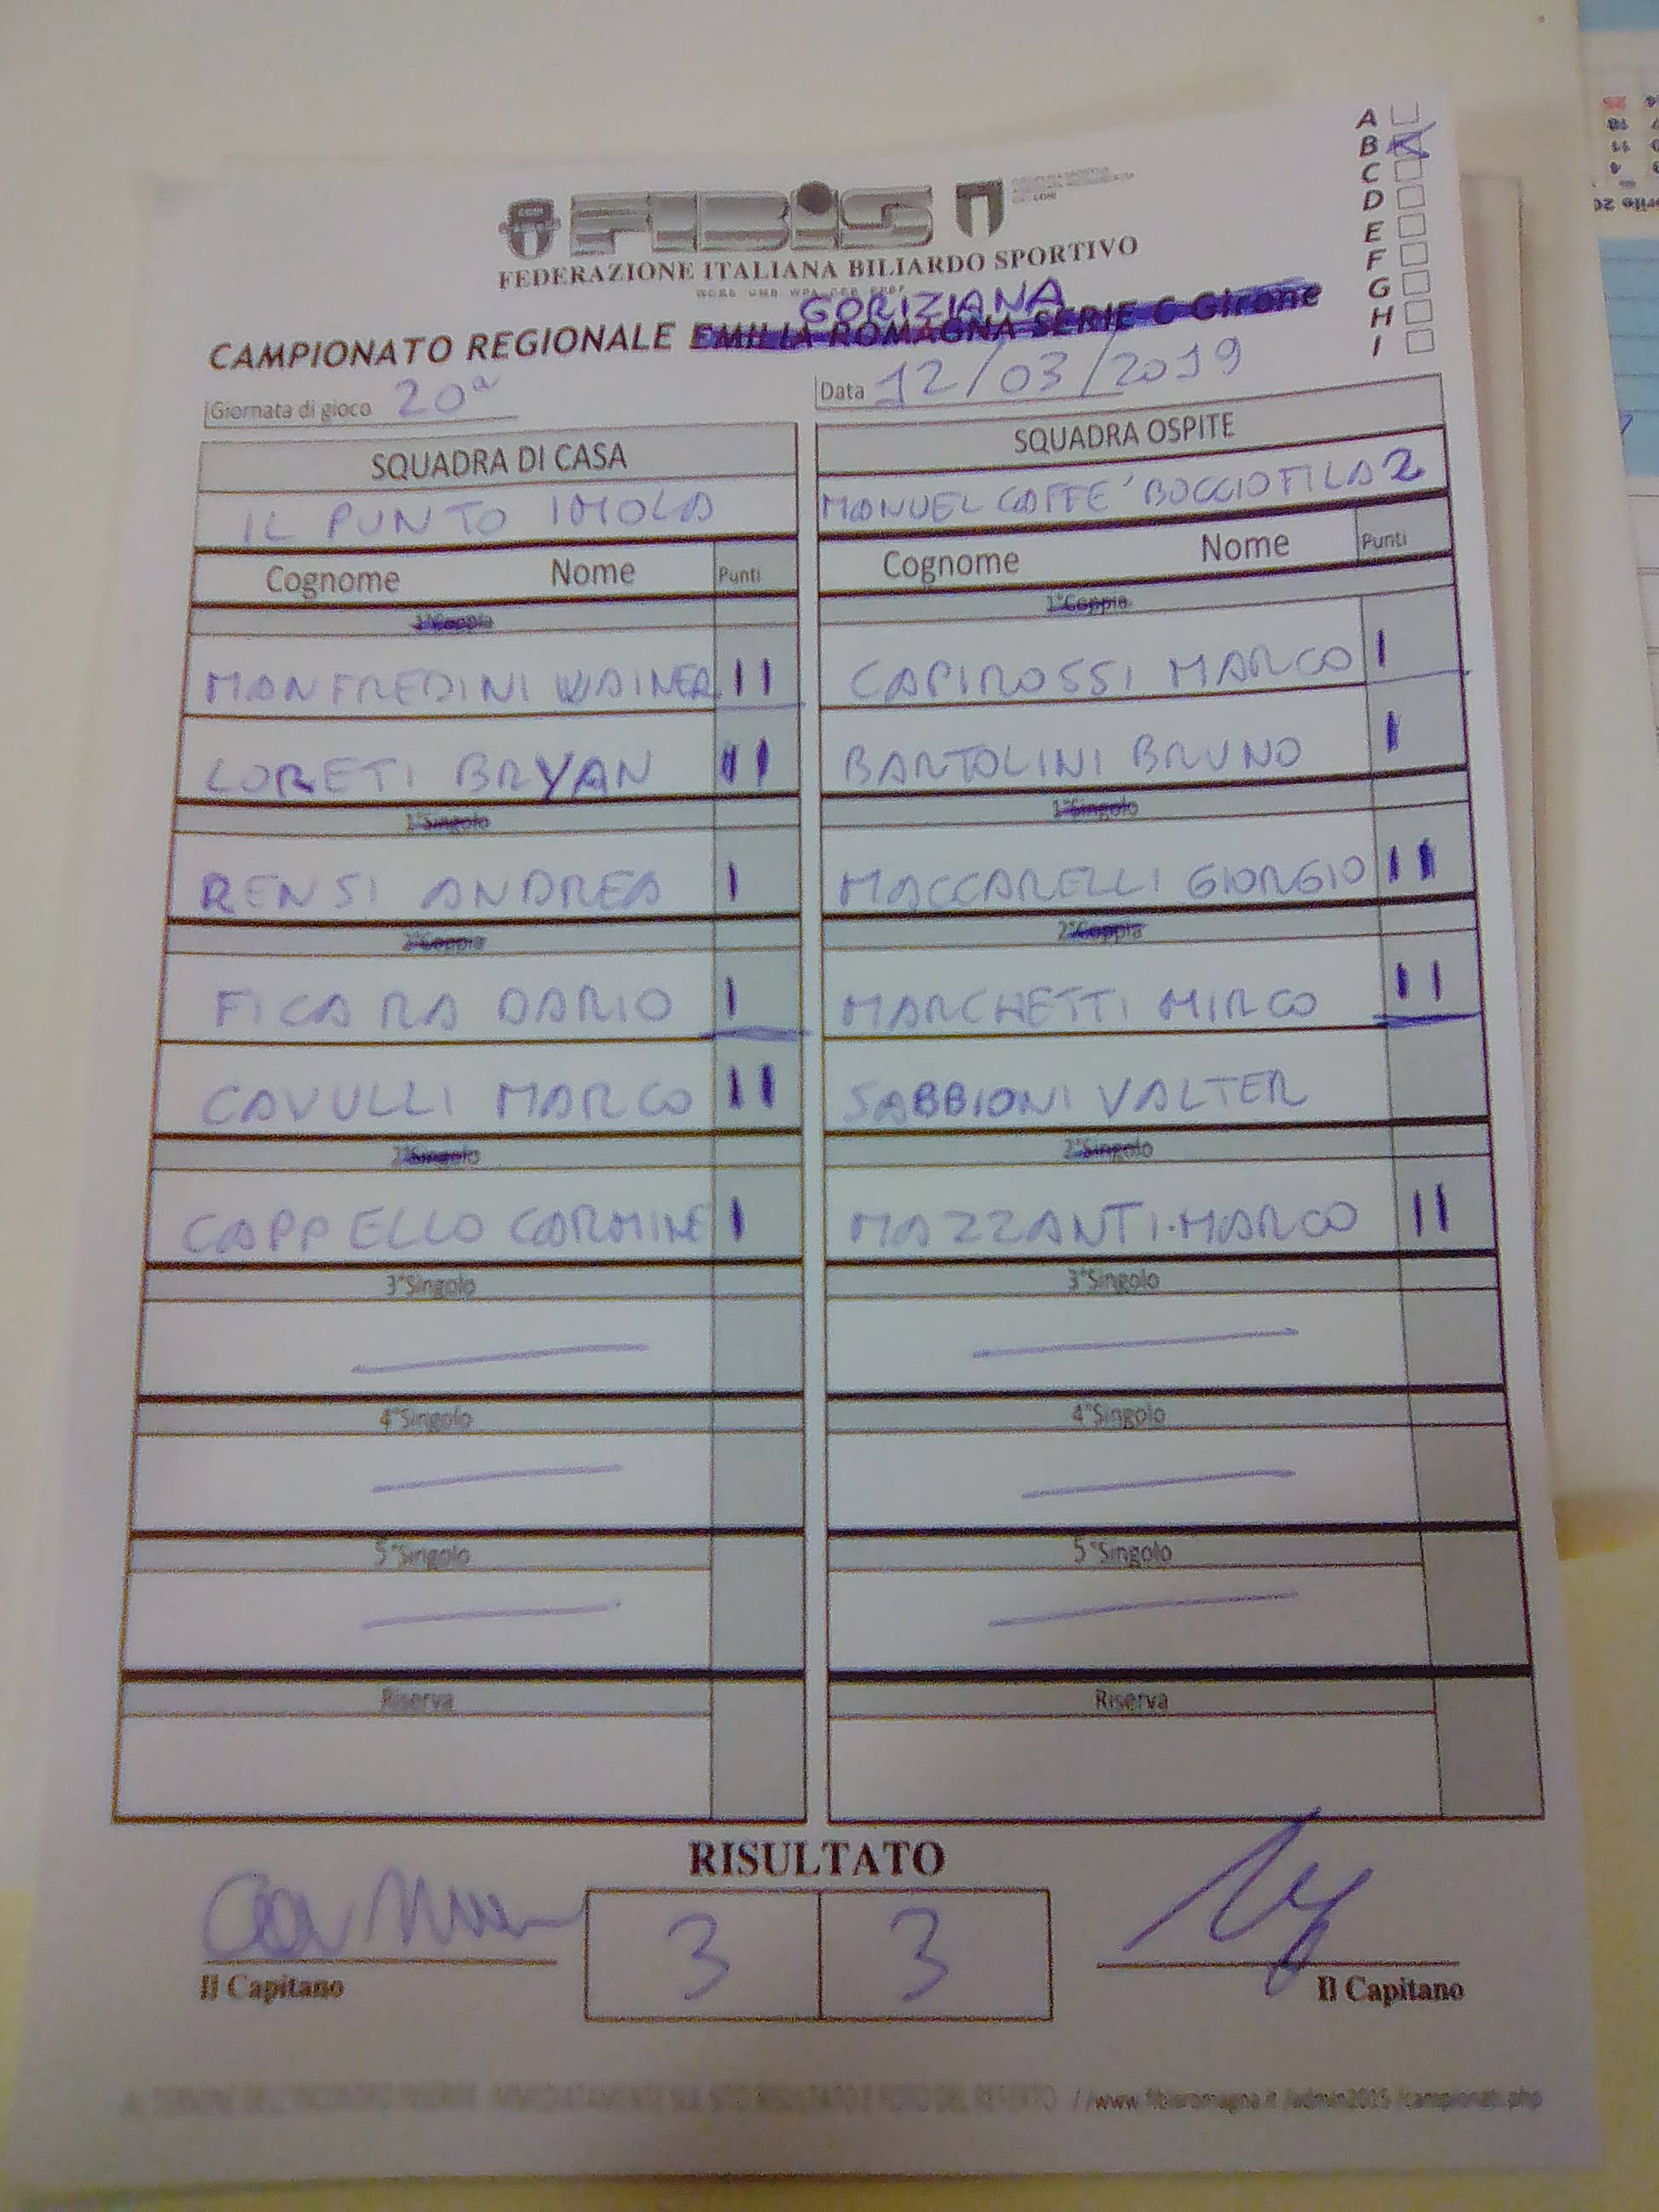 A
B
C
D
E
F
G
H
I
FIBIS
FEDERAZIONE ITALIANA BILIARDO SPORTIVO
GORIZIANA
CAMPIONATO REGIONALE EMILIA ROMAGNA SERIE C Girone
Giornata di gioco 20ª
Data 12/03/2019
SQUADRA DI CASA SQUADRA OSPITE
IL PUNTO IMOLA MANUEL CAFFE' BOCCIOFILA 2
Cognome Nome Punti Cognome Nome Punti
1°Coppia 1°Coppia
MANFREDINI WAINER II CAPIROSSI MARCO I
LORETI BRYAN II BARTOLINI BRUNO I
1°Singolo 1°Singolo
RENSI ANDREA I MACCARELLI GIORGIO II
2°Coppia 2°Coppia
FICARA DARIO I MARCHETTI MIRCO II
CAVULLI MARCO II SABBIONI VALTER
2°Singolo 2°Singolo
CAPPELLO CARMINE I MAZZANTI.MARCO II
3°Singolo 3°Singolo
4°Singolo 4°Singolo
5°Singolo 5°Singolo
Riserva Riserva
RISULTATO
3 3
Il Capitano Il Capitano
//www.fibisromagna.it/admin2015/campionati.php